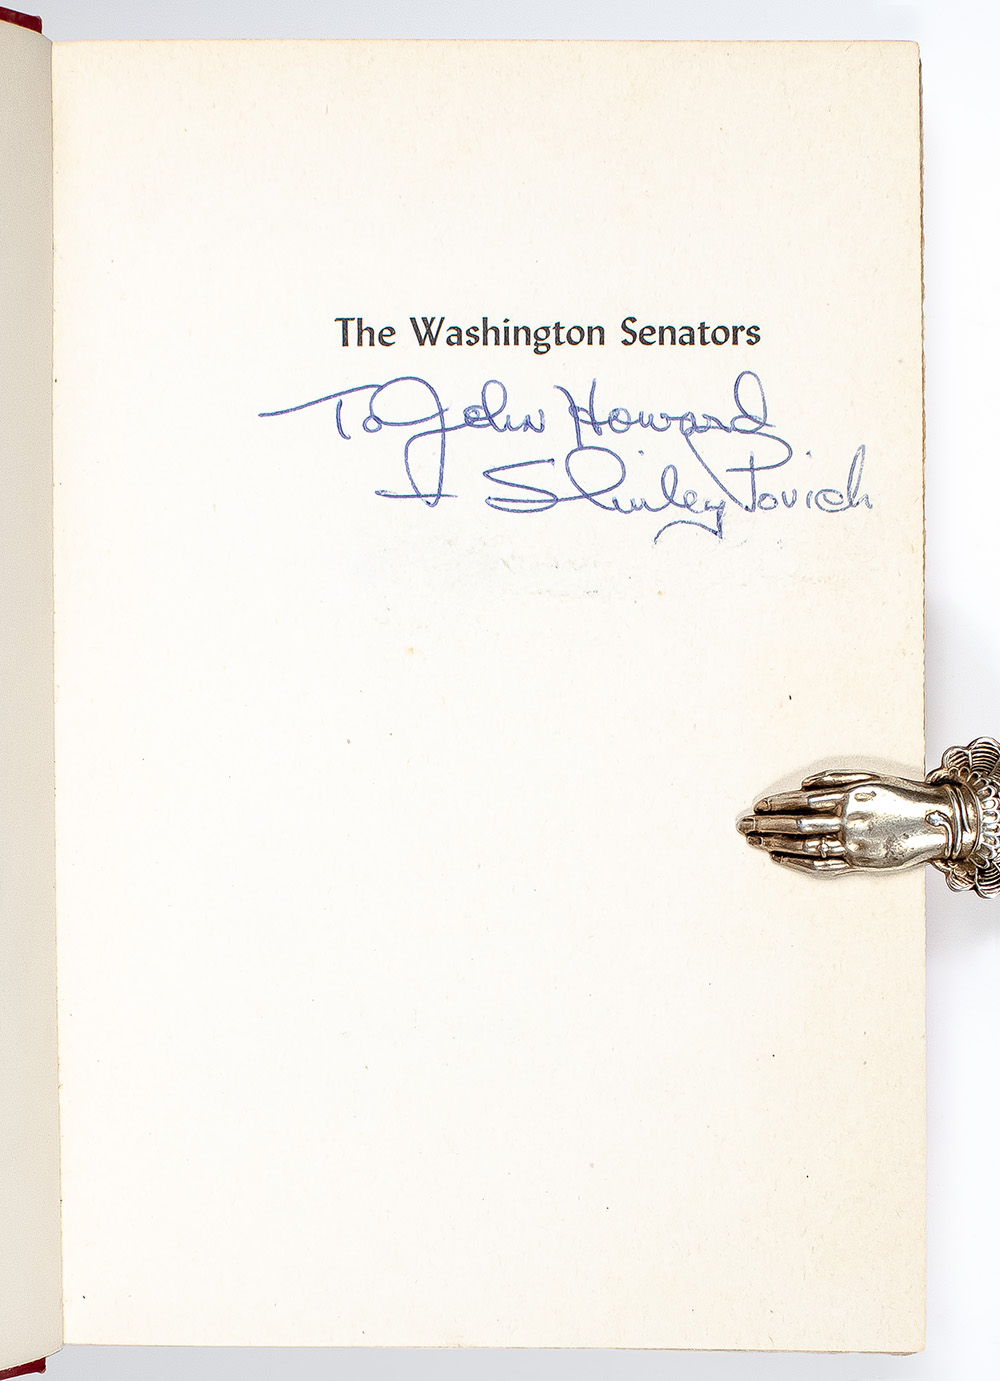 The Washington Senators
To John Howard
Shirley Povich